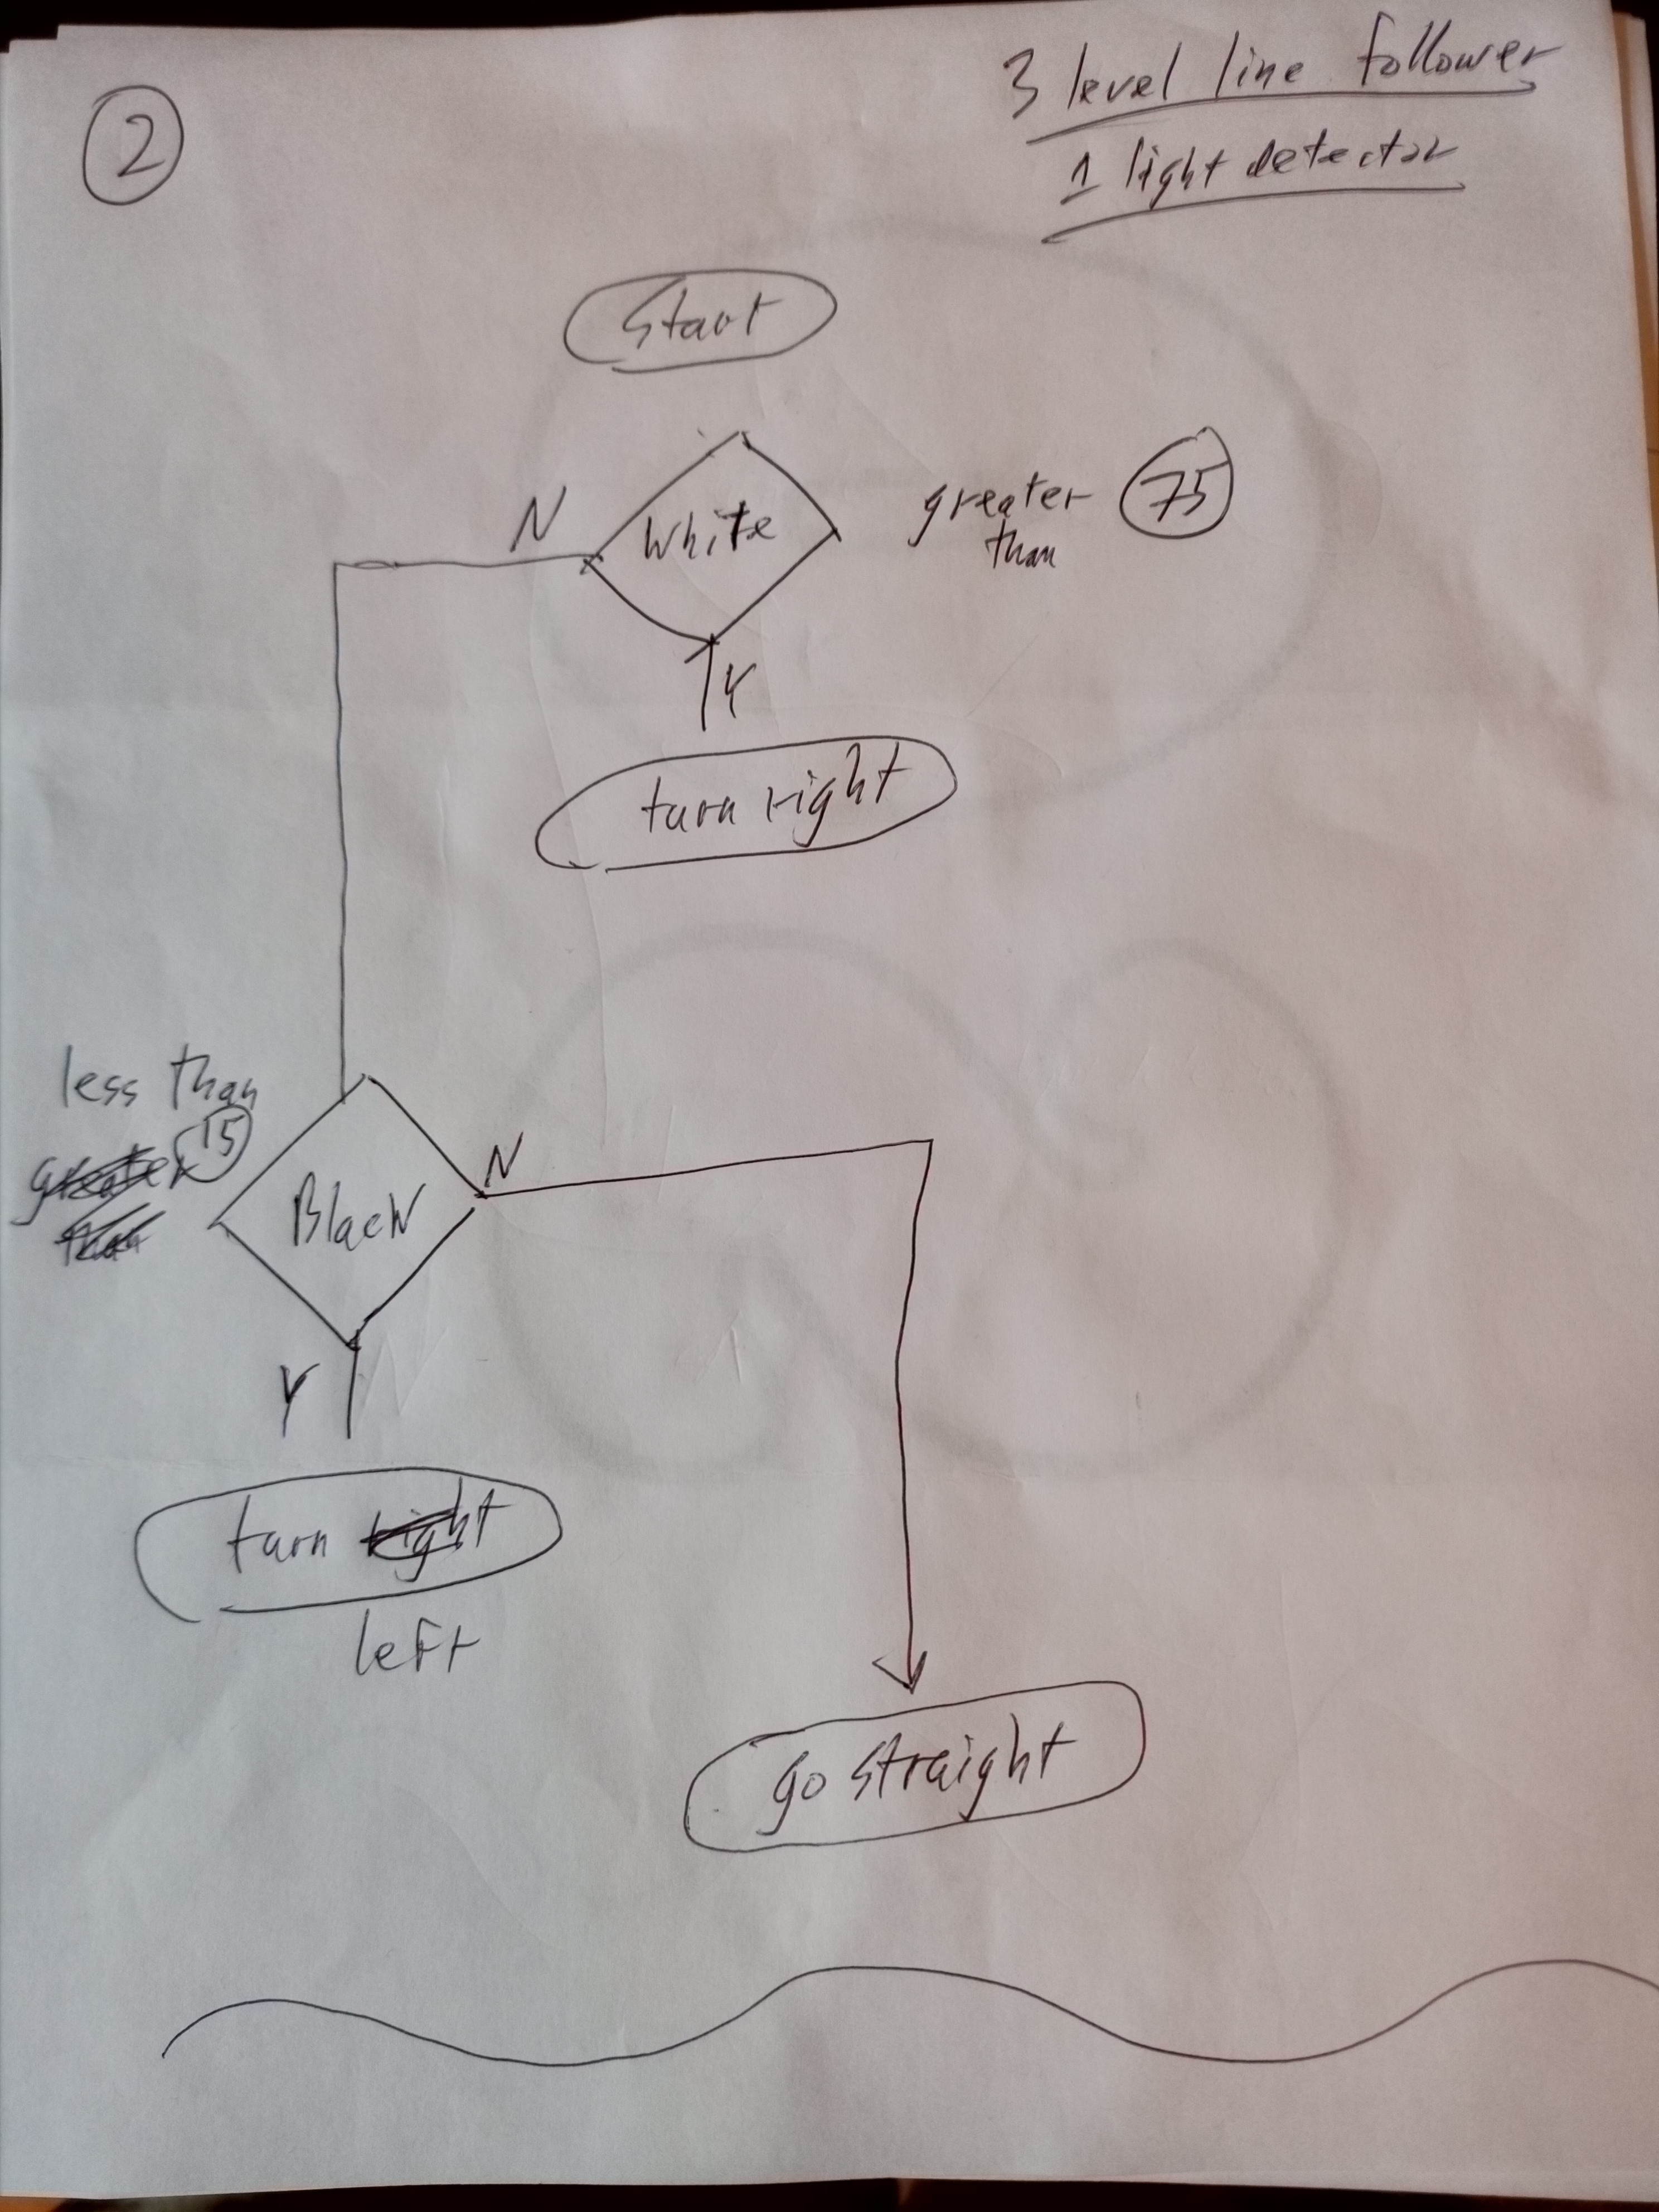 2
3 level line follower
1 light detector
Start
N
White
greater
than
75
Y
turn right
less than
greater
15
than
Black
N
Y
turn right
left
go straight